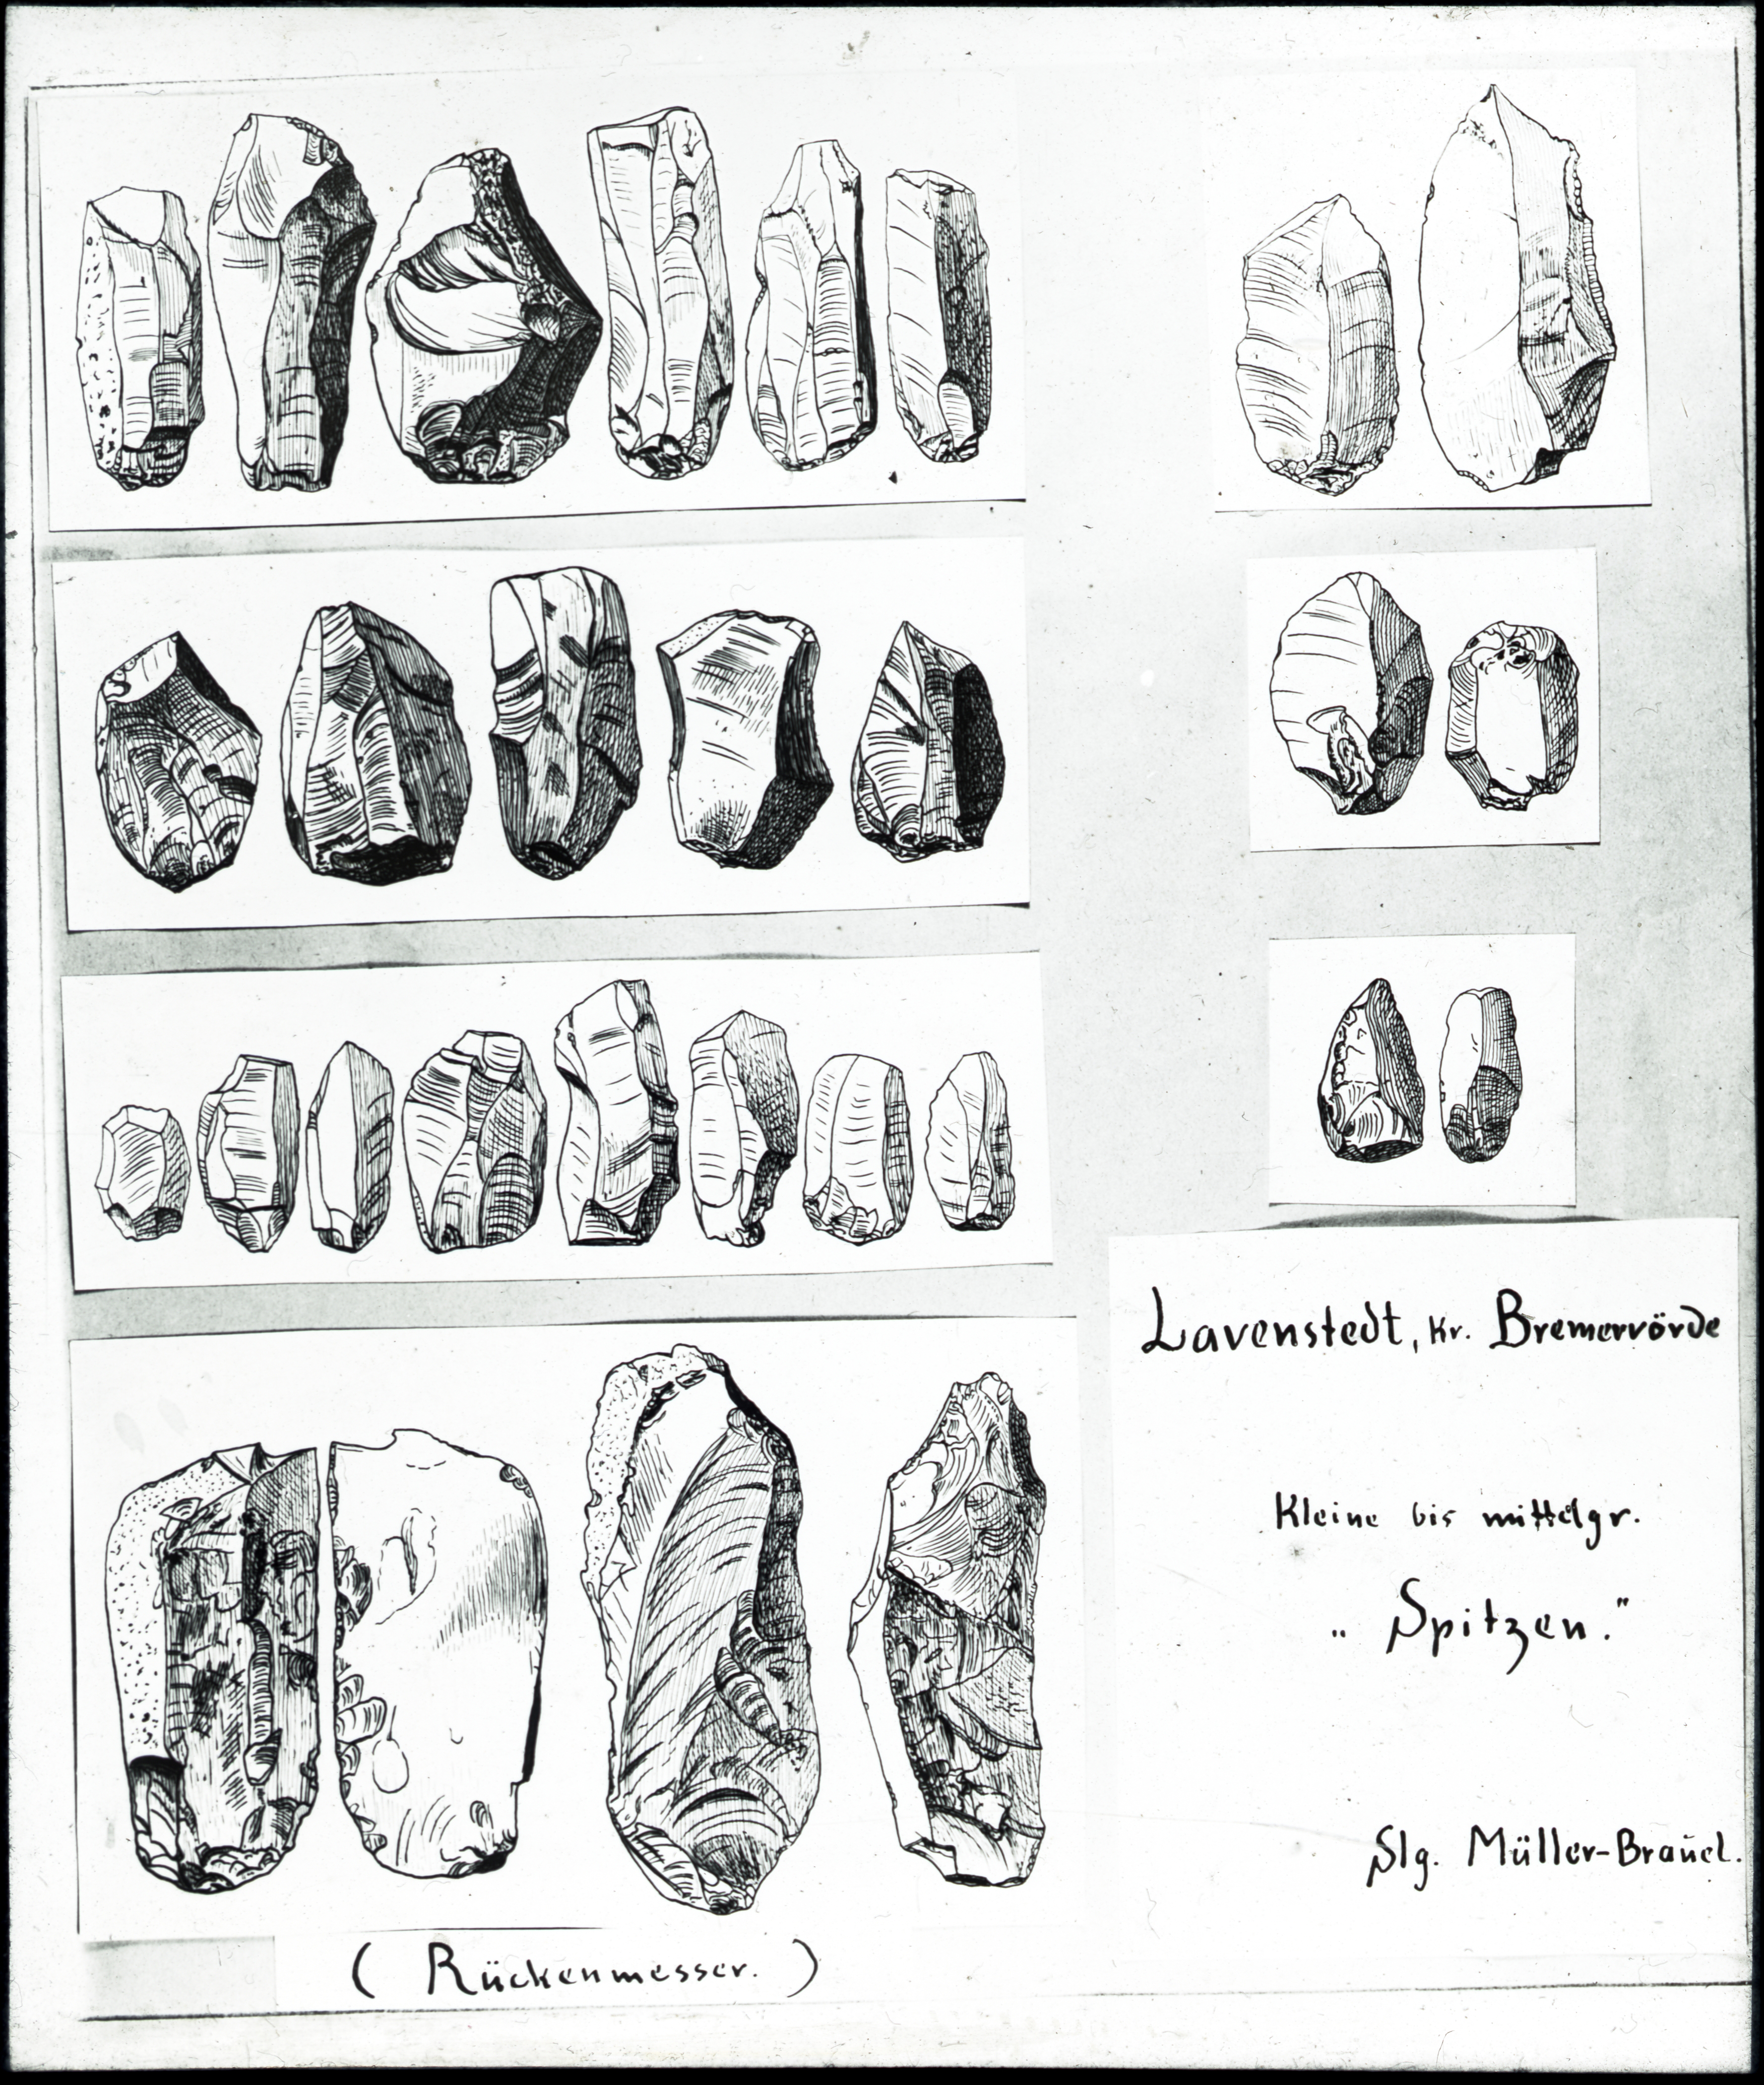 Lavenstedt, Kr. Bremervörde
Kleine bis mittelgr.
„Spitzen."
Slg. Müller-Brauel.
( Rückenmesser. )